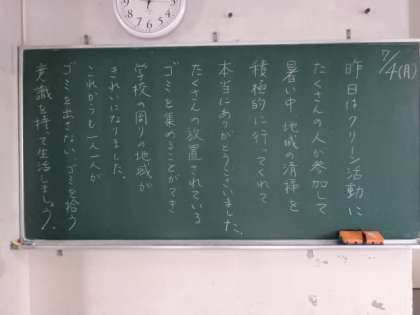 7/4(月)
昨日はクリーン活動に
たくさんの人が参加して
暑い中 地域の清掃を
積極的に行ってくれて
本当にありがとうございました。
たくさんの放置されている
ゴミを集めることができ
学校の周りの地域が
きれいになりました。
これからも一人一人が
ゴミを出さない、ゴミを拾う
意識を持って生活しましょう。